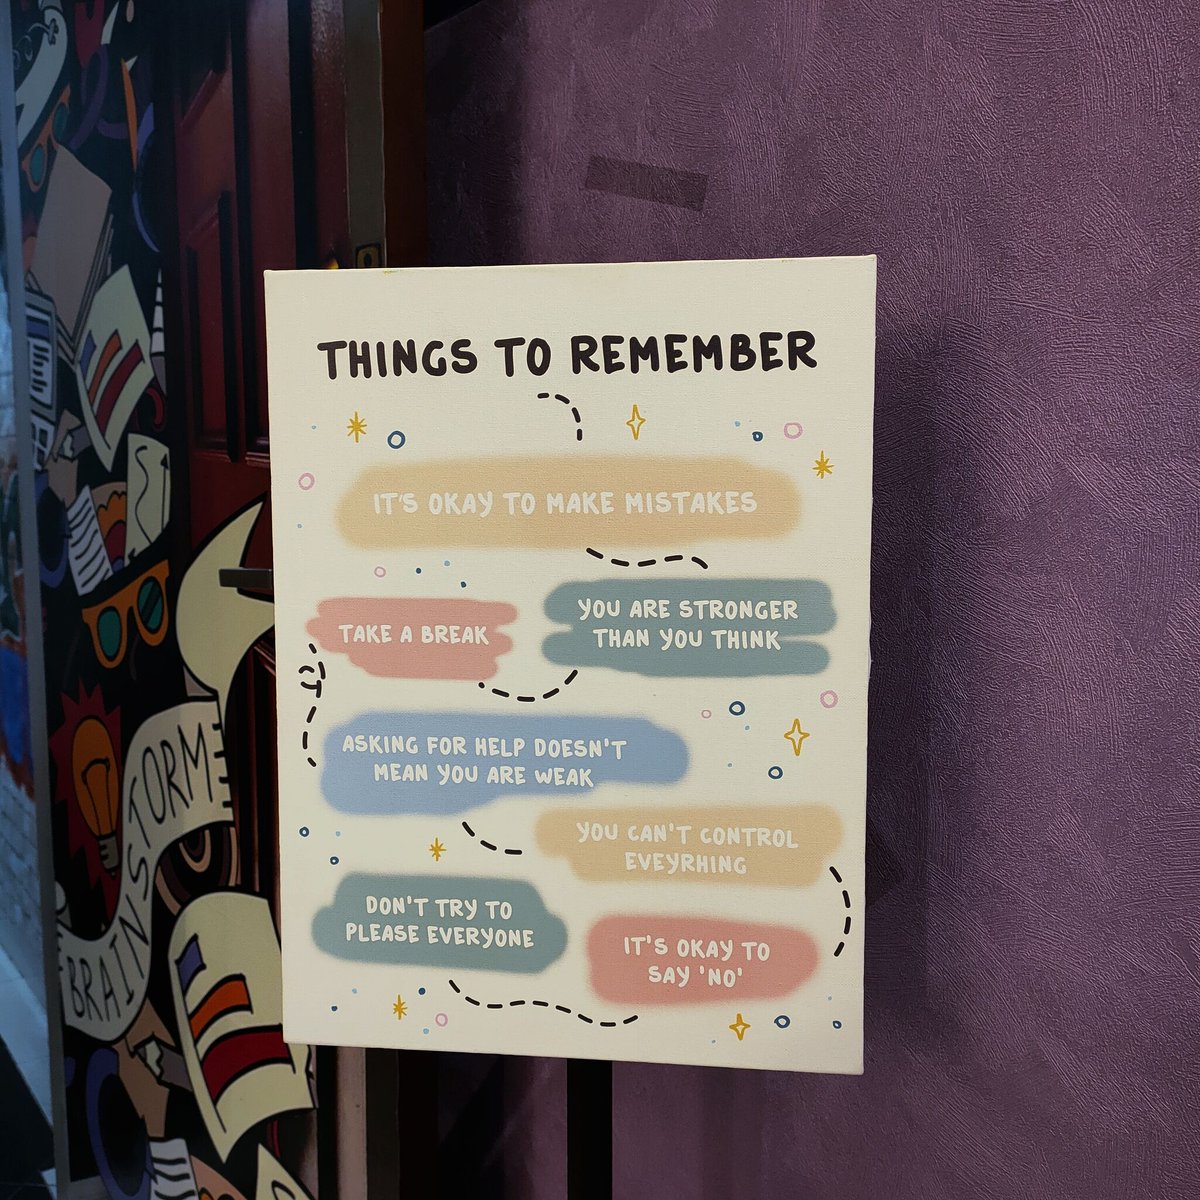 THINGS TO REMEMBER
IT'S OKAY TO MAKE MISTAKES
YOU ARE STRONGER
THAN YOU THINK
TAKE A BREAK
ASKING FOR HELP DOESN'T
MEAN YOU ARE WEAK
YOU CAN'T CONTROL
EVEYRHING
DON'T TRY TO
PLEASE EVERYONE
IT'S OKAY TO
SAY 'NO'
BRAINSTORM